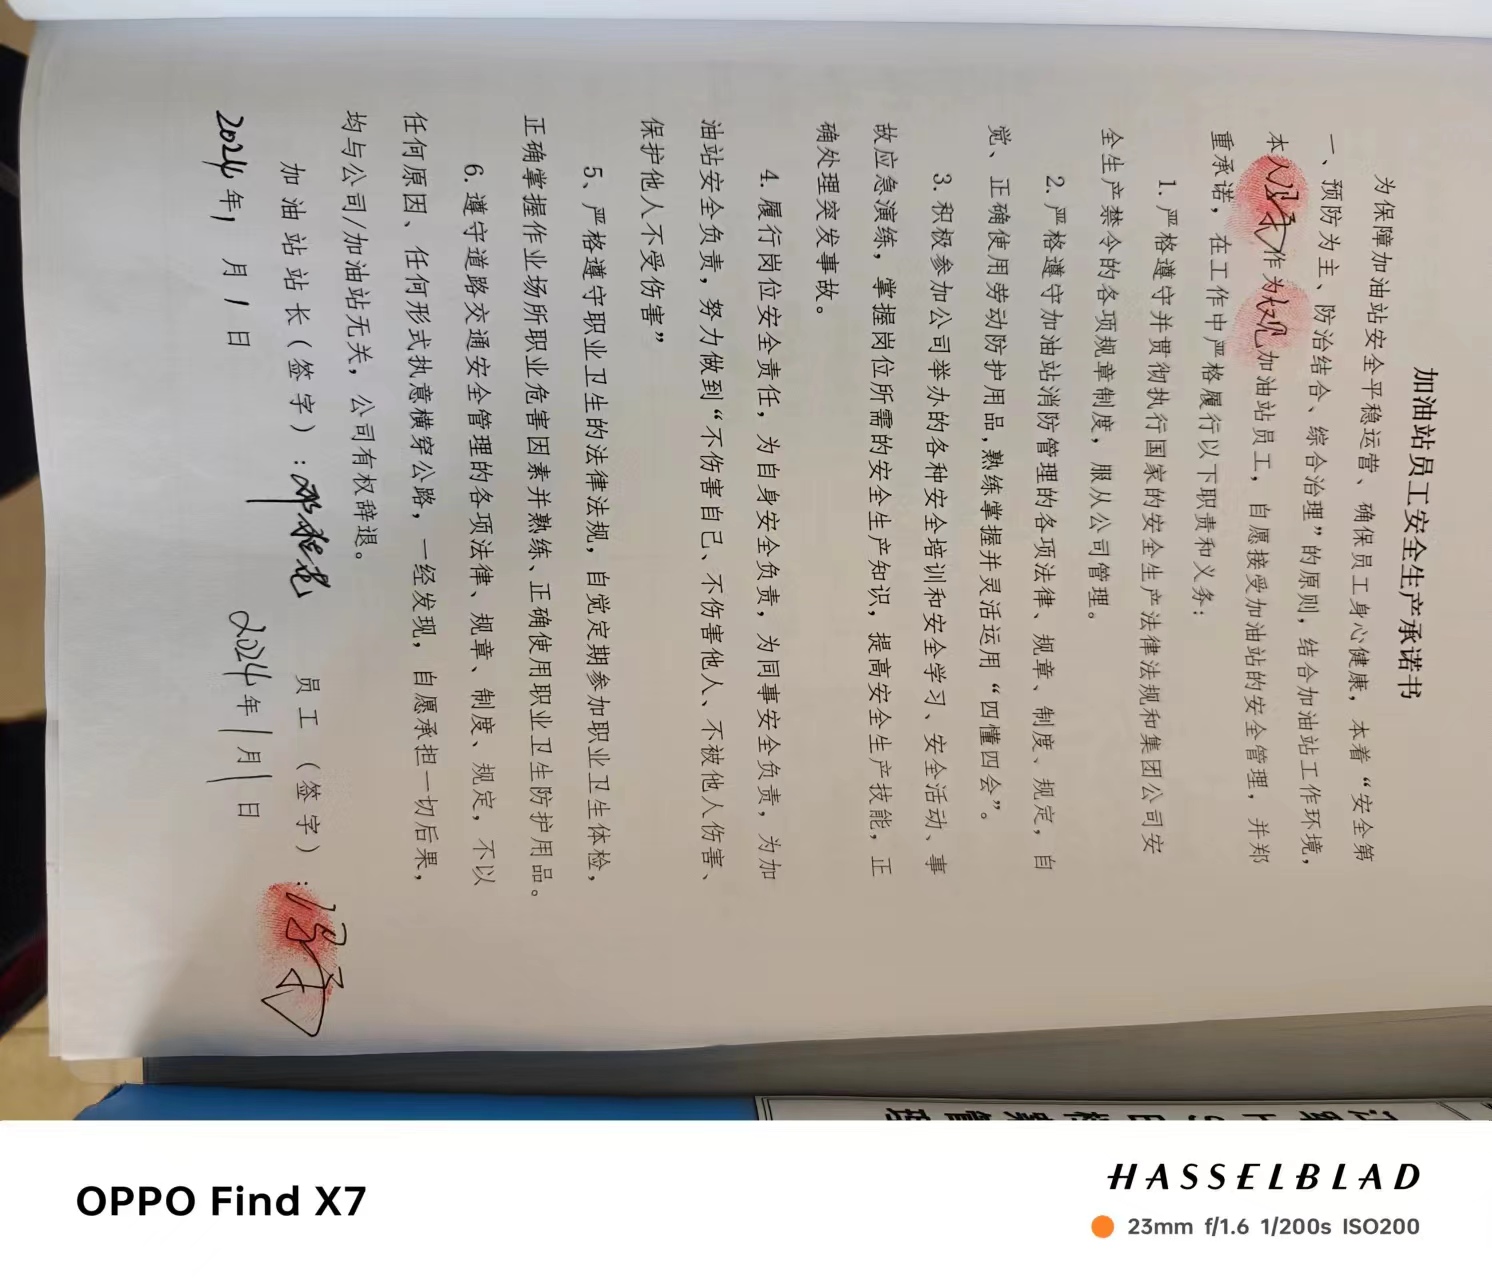 加油站员工安全生产承诺书
为保障加油站安全平稳运营、确保员工身心健康，本着“安全第
一、预防为主、防治结合、综合治理”的原则，结合加油站工作环境，
本人作为加油站员工，自愿接受加油站的安全管理，并郑
重承诺，在工作中严格履行以下职责和义务：
1.严格遵守并贯彻执行国家的安全生产法律法规和集团公司安
全生产禁令的各项规章制度，服从公司管理。
2.严格遵守加油站消防管理的各项法律、规章、制度、规定，自
觉、正确使用劳动防护用品,熟练掌握并灵活运用“四懂四会”。
3.积极参加公司举办的各种安全培训和安全学习、安全活动、事
故应急演练，掌握岗位所需的安全生产知识，提高安全生产技能，正
确处理突发事故。
4.履行岗位安全责任，为自身安全负责，为同事安全负责，为加
油站安全负责，努力做到“不伤害自己、不伤害他人、不被他人伤害、
保护他人不受伤害”
5、严格遵守职业卫生的法律法规，自觉定期参加职业卫生体检，
正确掌握作业场所职业危害因素并熟练、正确使用职业卫生防护用品。
6.遵守道路交通安全管理的各项法律、规章、制度、规定，不以
任何原因、任何形式执意横穿公路，一经发现，自愿承担一切后果，
均与公司/加油站无关，公司有权辞退。
加油站站长（签字）： 员工（签字）：
2024年1月1日 2024年1月1日
OPPO Find X7
HASSELBLAD
23mm f/1.6 1/200s ISO200